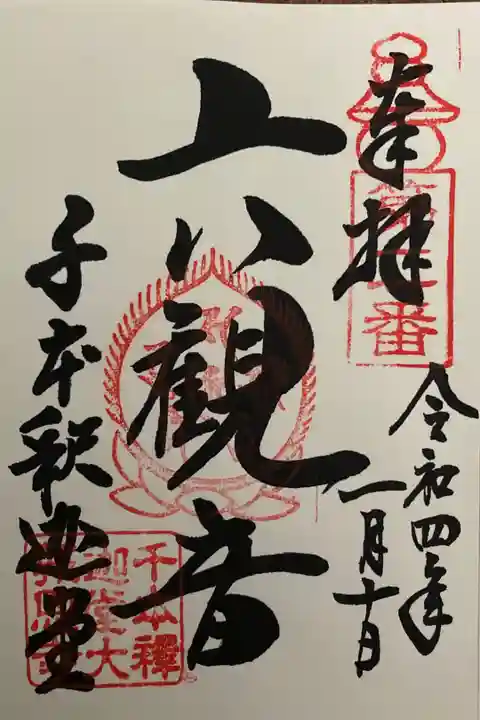 奉拝
令和四年
一月十日
六観音
千本釈迦堂
千本釋
迦堂大
報恩寺